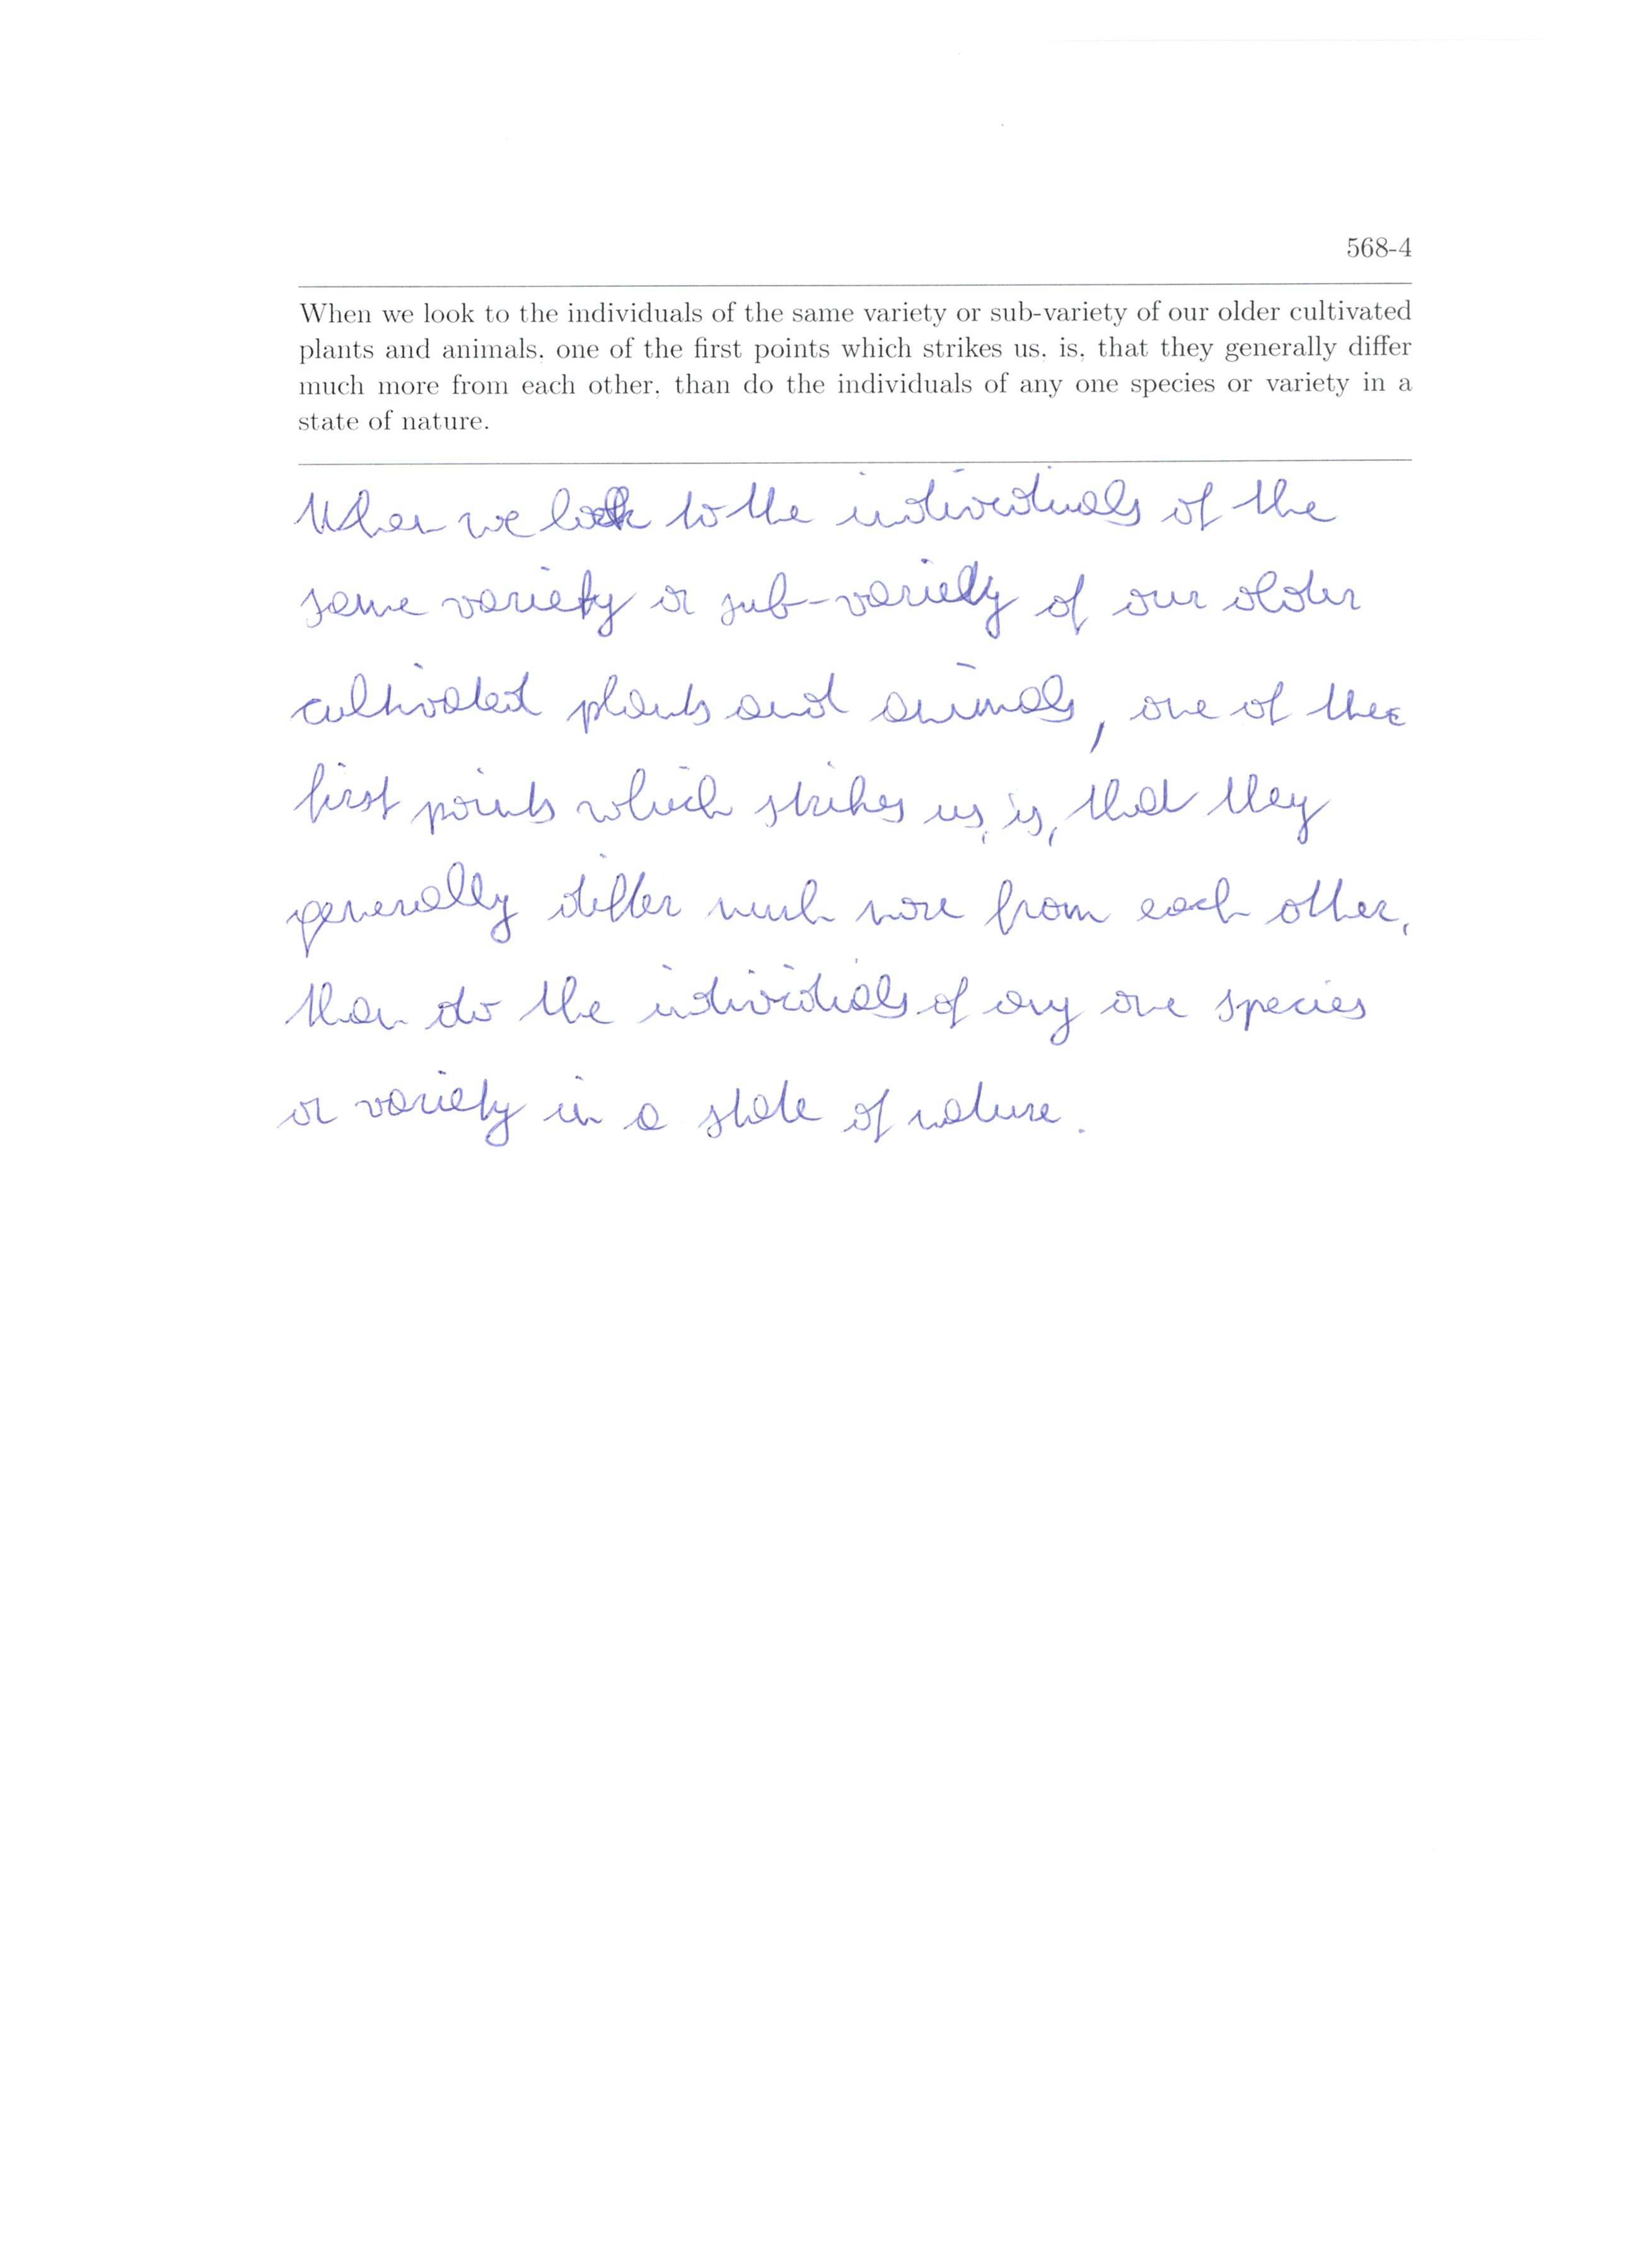 568-4
When we look to the individuals of the same variety or sub-variety of our older cultivated
plants and animals, one of the first points which strikes us, is, that they generally differ
much more from each other, than do the individuals of any one species or variety in a
state of nature.
When we look to the individuals of the
same variety or sub-variety of our older
cultivated plants and animals, one of the
first points which strikes us, is, that they
generally differ much more from each other,
than do the individials of any one species
or variety in a state of nature.